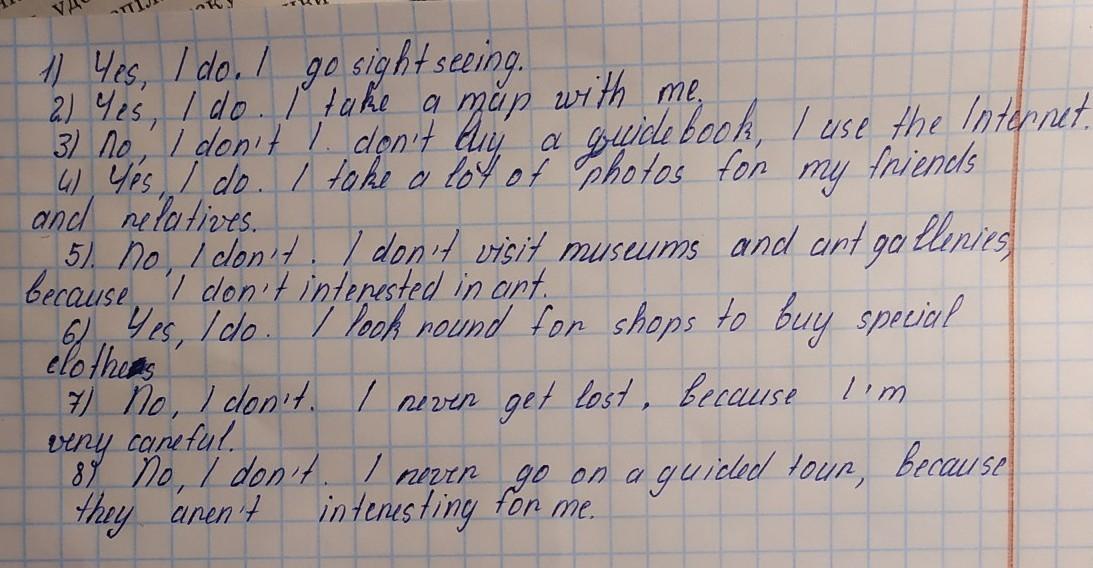 1) Yes, I do. I go sightseeing.
2) Yes, I do. I take a map with me.
3) No, I don't I. don't buy a guidebook, I use the Internet.
4) Yes, I do. I take a lot of photos for my friends
and relatives.
5). No, I don't. I don't visit museums and art galleries,
because I don't interested in art.
6) Yes, I do. I look round for shops to buy special
clothes
7) No, I don't. I never get lost, because I'm
very careful.
8) No, I don't. I never go on a guided tour, because
they aren't interesting for me.